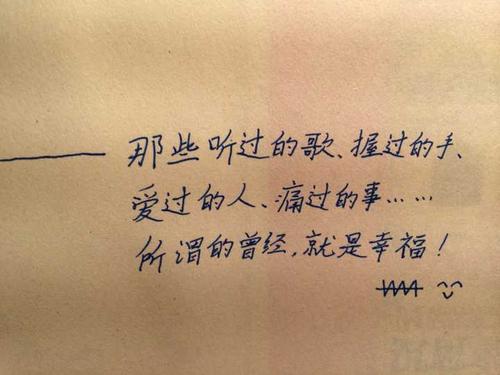 ——那些听过的歌、握过的手、
爱过的人、痛过的事……
所谓的曾经,就是幸福!